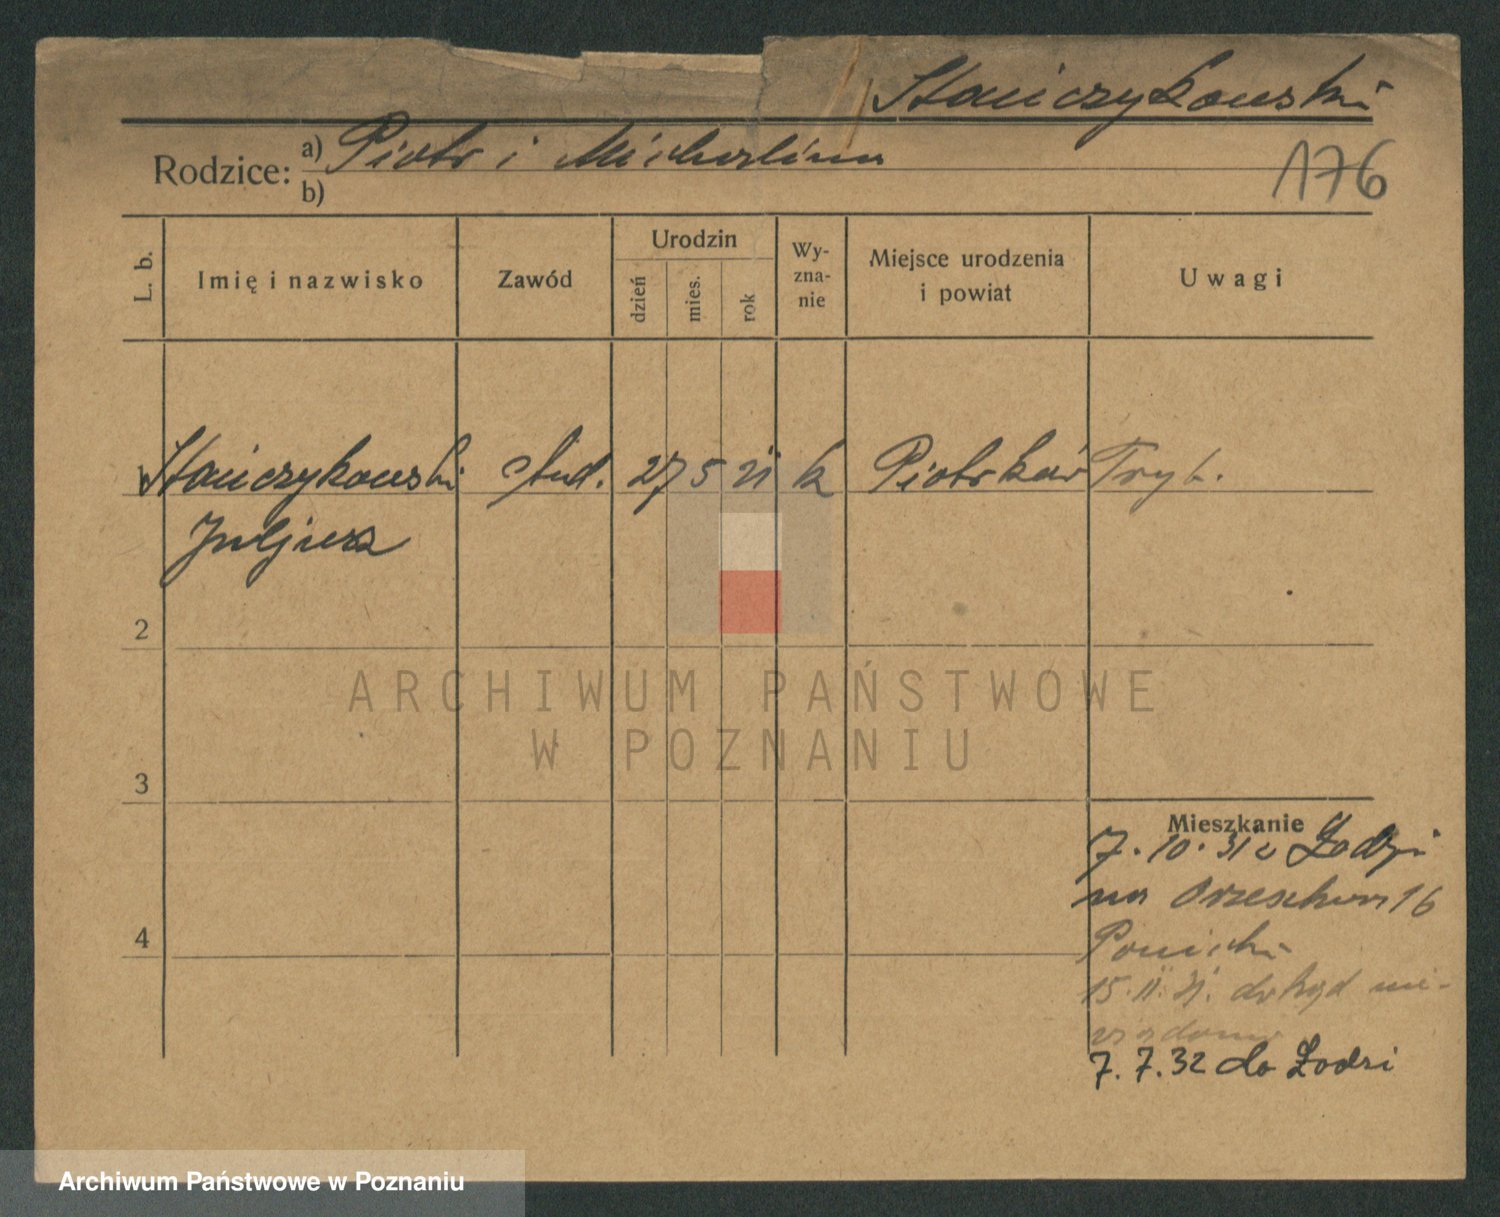 Stańczykowski
Rodzice: a) Piotr i Michalina
b)
176
L. b.
Imię i nazwisko
Zawód
Urodzin
dzień
mies.
rok
Wy-
zna-
nie
Miejsce urodzenia
i powiat
Uwagi
1 Stańczykowski stud. 27 5 k Piotrków Tryb.
Juljusz
2
ARCHIWUM PAŃSTWOWE
W POZNANIU
3
Mieszkanie
7. 10. 31 z Łodzi
na 16
15. 11. 31. dokąd nie-
wiadomo
4
7. 7. 32 do Łodzi
Archiwum Państwowe w Poznaniu